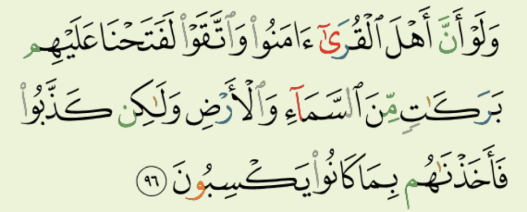 وَلَوْ أَنَّ أَهْلَ ٱلْقُرَىٰٓ ءَامَنُوا۟ وَٱتَّقَوْا۟ لَفَتَحْنَا عَلَيْهِم
بَرَكَـٰتٍ مِّنَ ٱلسَّمَآءِ وَٱلْأَرْضِ وَلَـٰكِن كَذَّبُوا۟
فَأَخَذْنَـٰهُم بِمَا كَانُوا۟ يَكْسِبُونَ ٩٦